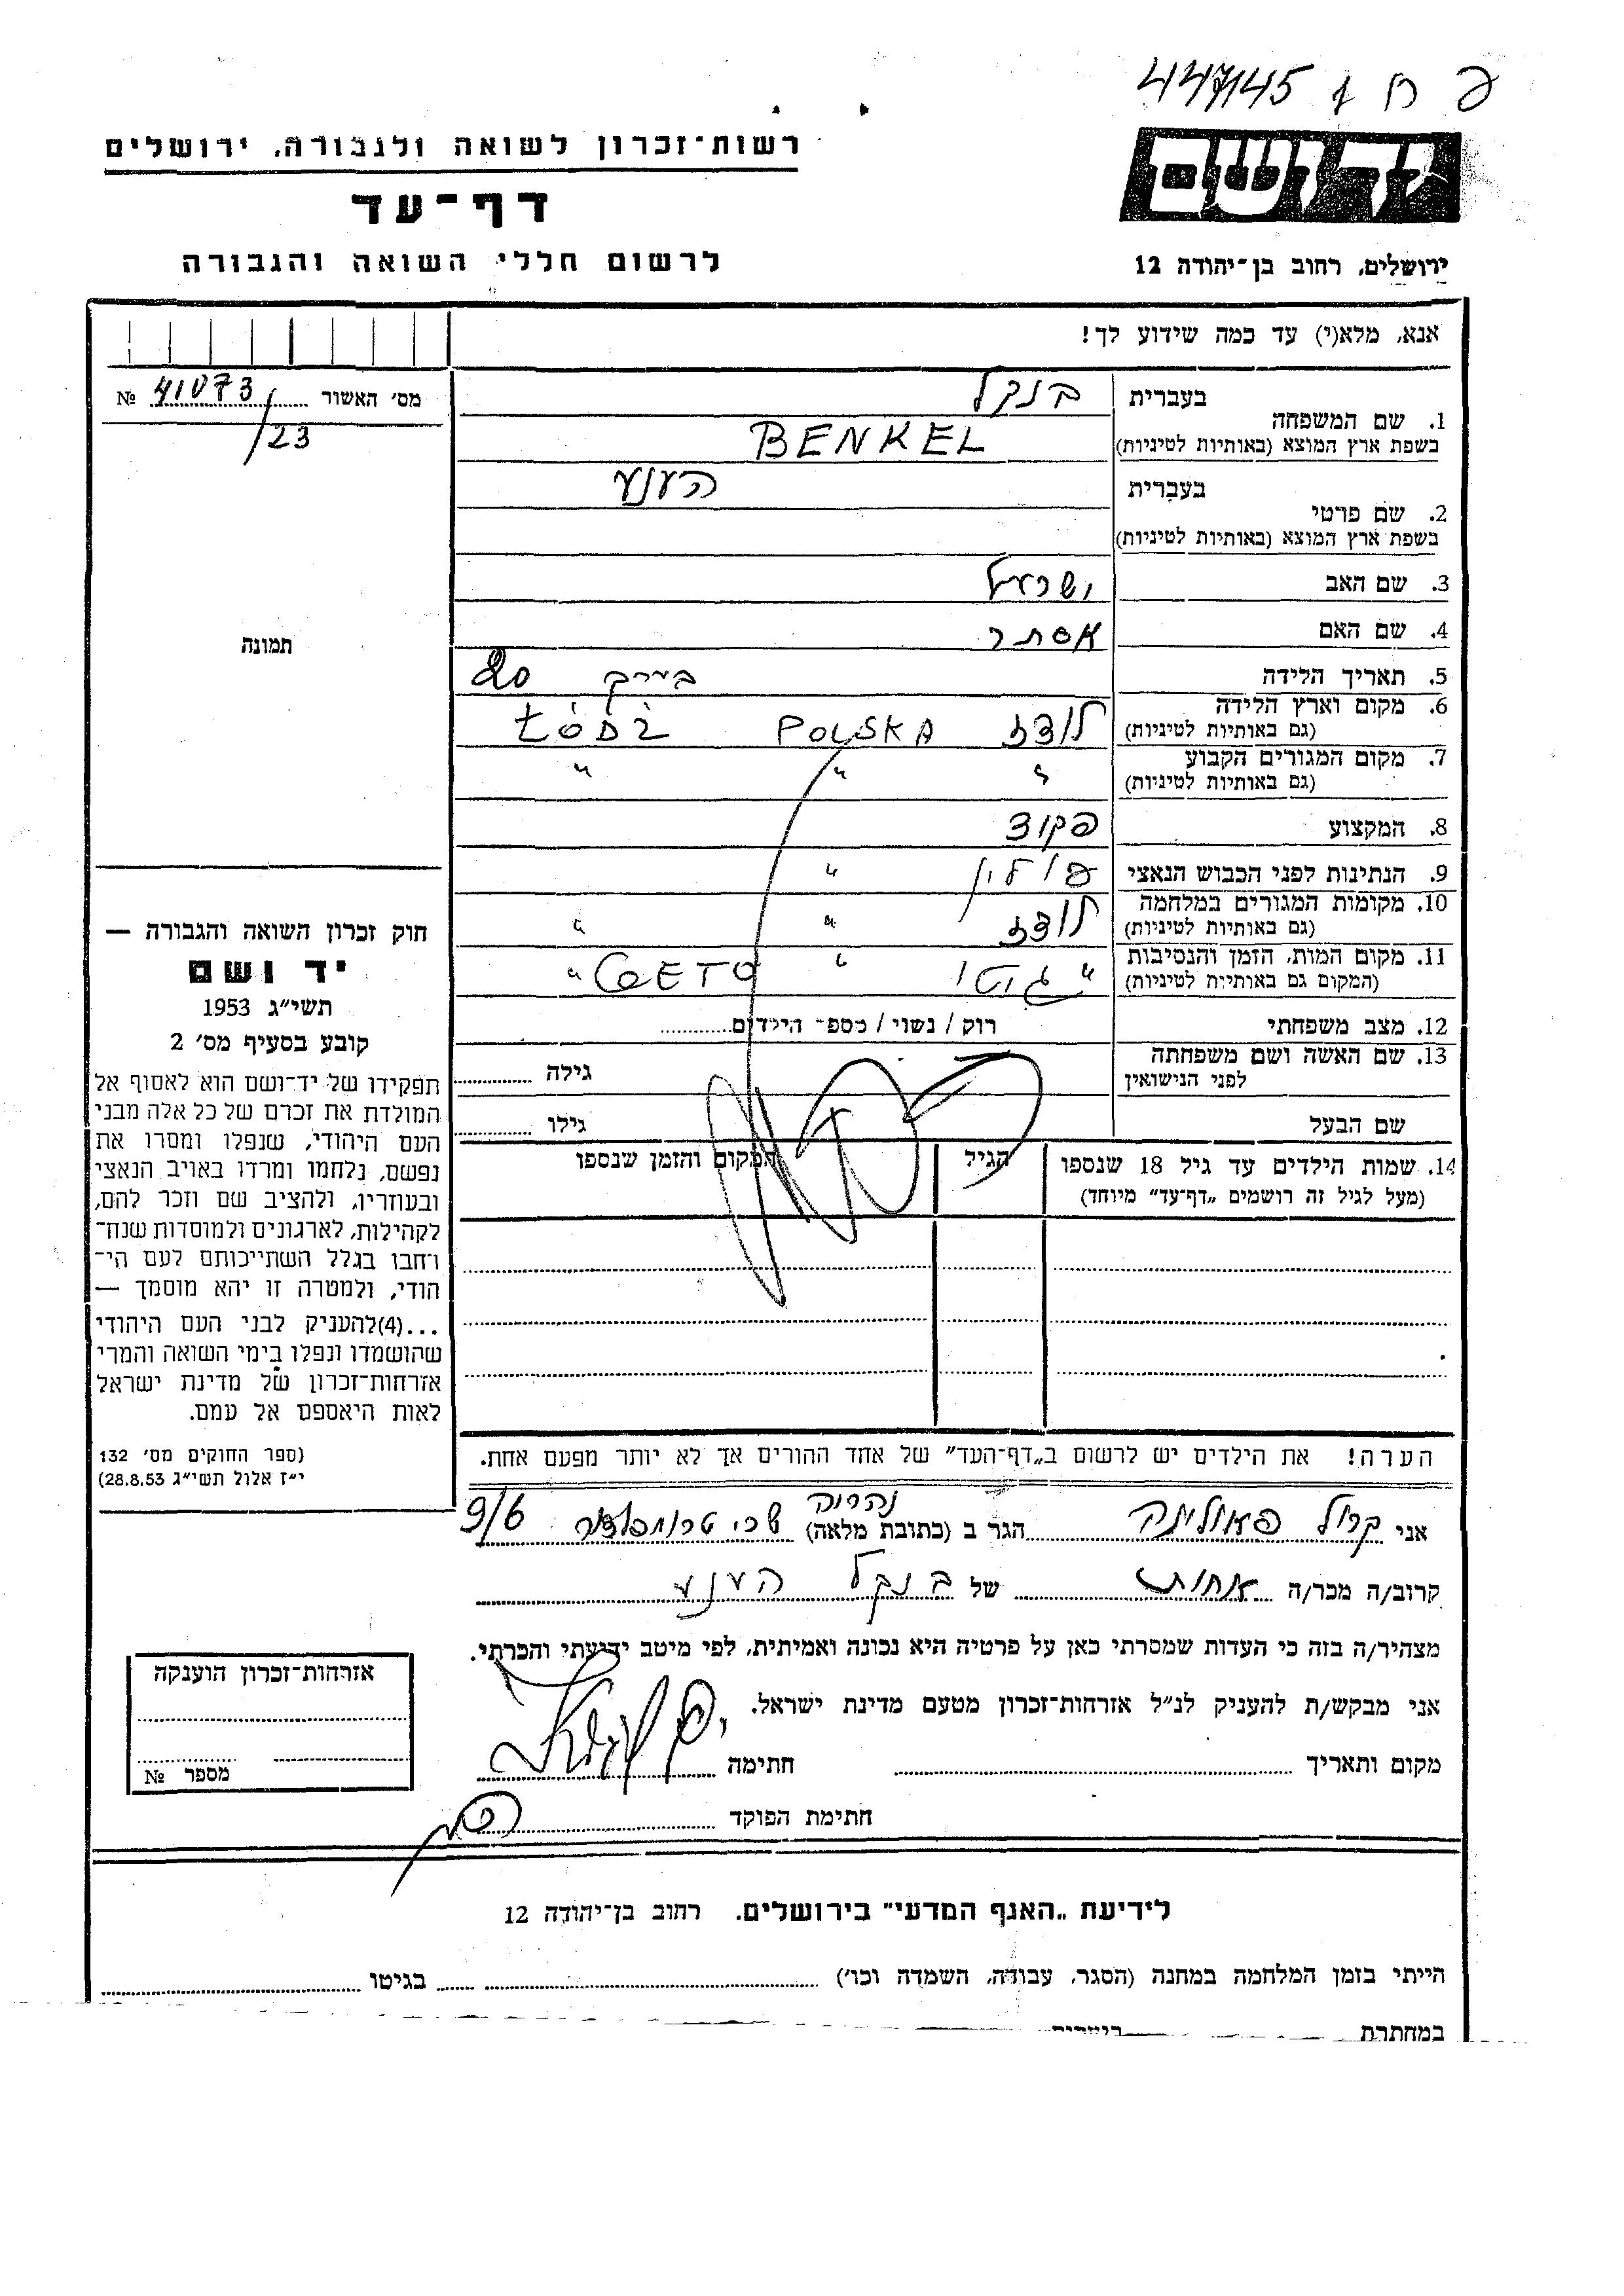 447145 פ ח 1
יד ושם
רשות־זכרון לשואה ולגבורה, ירושלים
דף־עד
לרשום חללי השואה והגבורה
ירושלים, רחוב בן־יהודה 12
אנא, מלא(י) עד כמה שידוע לך!
מס׳ האשור 41073 №
/23
1. שם המשפחה
בעברית בנקל
בשפת ארץ המוצא (באותיות לטיניות) BENKEL
2. שם פרטי
בעברית הענע
בשפת ארץ המוצא (באותיות לטיניות)
3. שם האב ישראל
4. שם האם אסתר
5. תאריך הלידה בערך 20
6. מקום וארץ הלידה לודז POLSKA ŁÓDŹ
(גם באותיות לטיניות)
7. מקום המגורים הקבוע " " "
(גם באותיות לטיניות)
8. המקצוע פקיד
9. הנתינות לפני הכבוש הנאצי פולין "
10. מקומות המגורים במלחמה לודז " "
(גם באותיות לטיניות)
11. מקום המות, הזמן והנסיבות " גיטו " GETO "
(המקום גם באותיות לטיניות)
12. מצב משפחתי רוק / נשוי / מספר הילדים
13. שם האשה ושם משפחתה גילה
לפני הנישואין
שם הבעל גילו
14. שמות הילדים עד גיל 18 שנספו הגיל המקום והזמן שנספו
(מעל לגיל זה רושמים „דף־עד״ מיוחד)
הערה! את הילדים יש לרשום ב„דף־העד״ של אחד ההורים אך לא יותר מפעם אחת.
תמונה
חוק זכרון השואה והגבורה —
יד ושם
תשי״ג 1953
קובע בסעיף מס׳ 2
תפקידו של יד־ושם הוא לאסוף אל
המולדת את זכרם של כל אלה מבני
העם היהודי, שנפלו ומסרו את
נפשם, נלחמו ומרדו באויב הנאצי
ובעוזריו, ולהציב שם וזכר להם,
לקהילות, לארגונים ולמוסדות שנח־
רחבו בגלל השתייכותם לעם הי־
הודי, ולמטרה זו יהא מוסמך —
...(4)להעניק לבני העם היהודי
שהושמדו ונפלו בימי השואה והמרי
אזרחות־זכרון של מדינת ישראל
לאות היאספם אל עמם.
(ספר החוקים מס׳ 132
י״ז אלול תשי״ג 28.8.53)
נהריה
אני קרול פאולינה הגר ב (כתובת מלאה) 9/6
קרוב/ה מכר/ה אחות של בנקל הענע
מצהיר/ה בזה כי העדות שמסרתי כאן על פרטיה היא נכונה ואמיתית, לפי מיטב ידיעתי והכרתי.
אני מבקש/ת להעניק לנ״ל אזרחות־זכרון מטעם מדינת ישראל.
מקום ותאריך חתימה
חתימת הפוקד
אזרחות־זכרון הוענקה
מספר №
לידיעת „האגף המדעי״ בירושלים. רחוב בן־יהודה 12
הייתי בזמן המלחמה במחנה (הסגר, עבודה, השמדה וכו׳) בגיטו
במחתרת ביערות